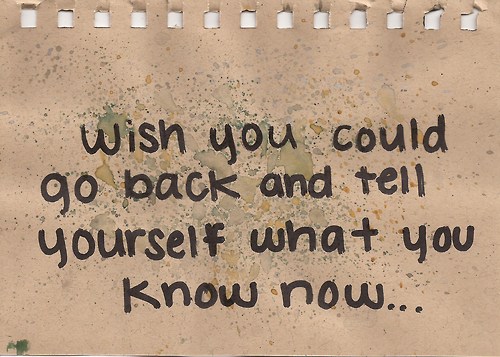 wish you could
go back and tell
yourself what you
know now...